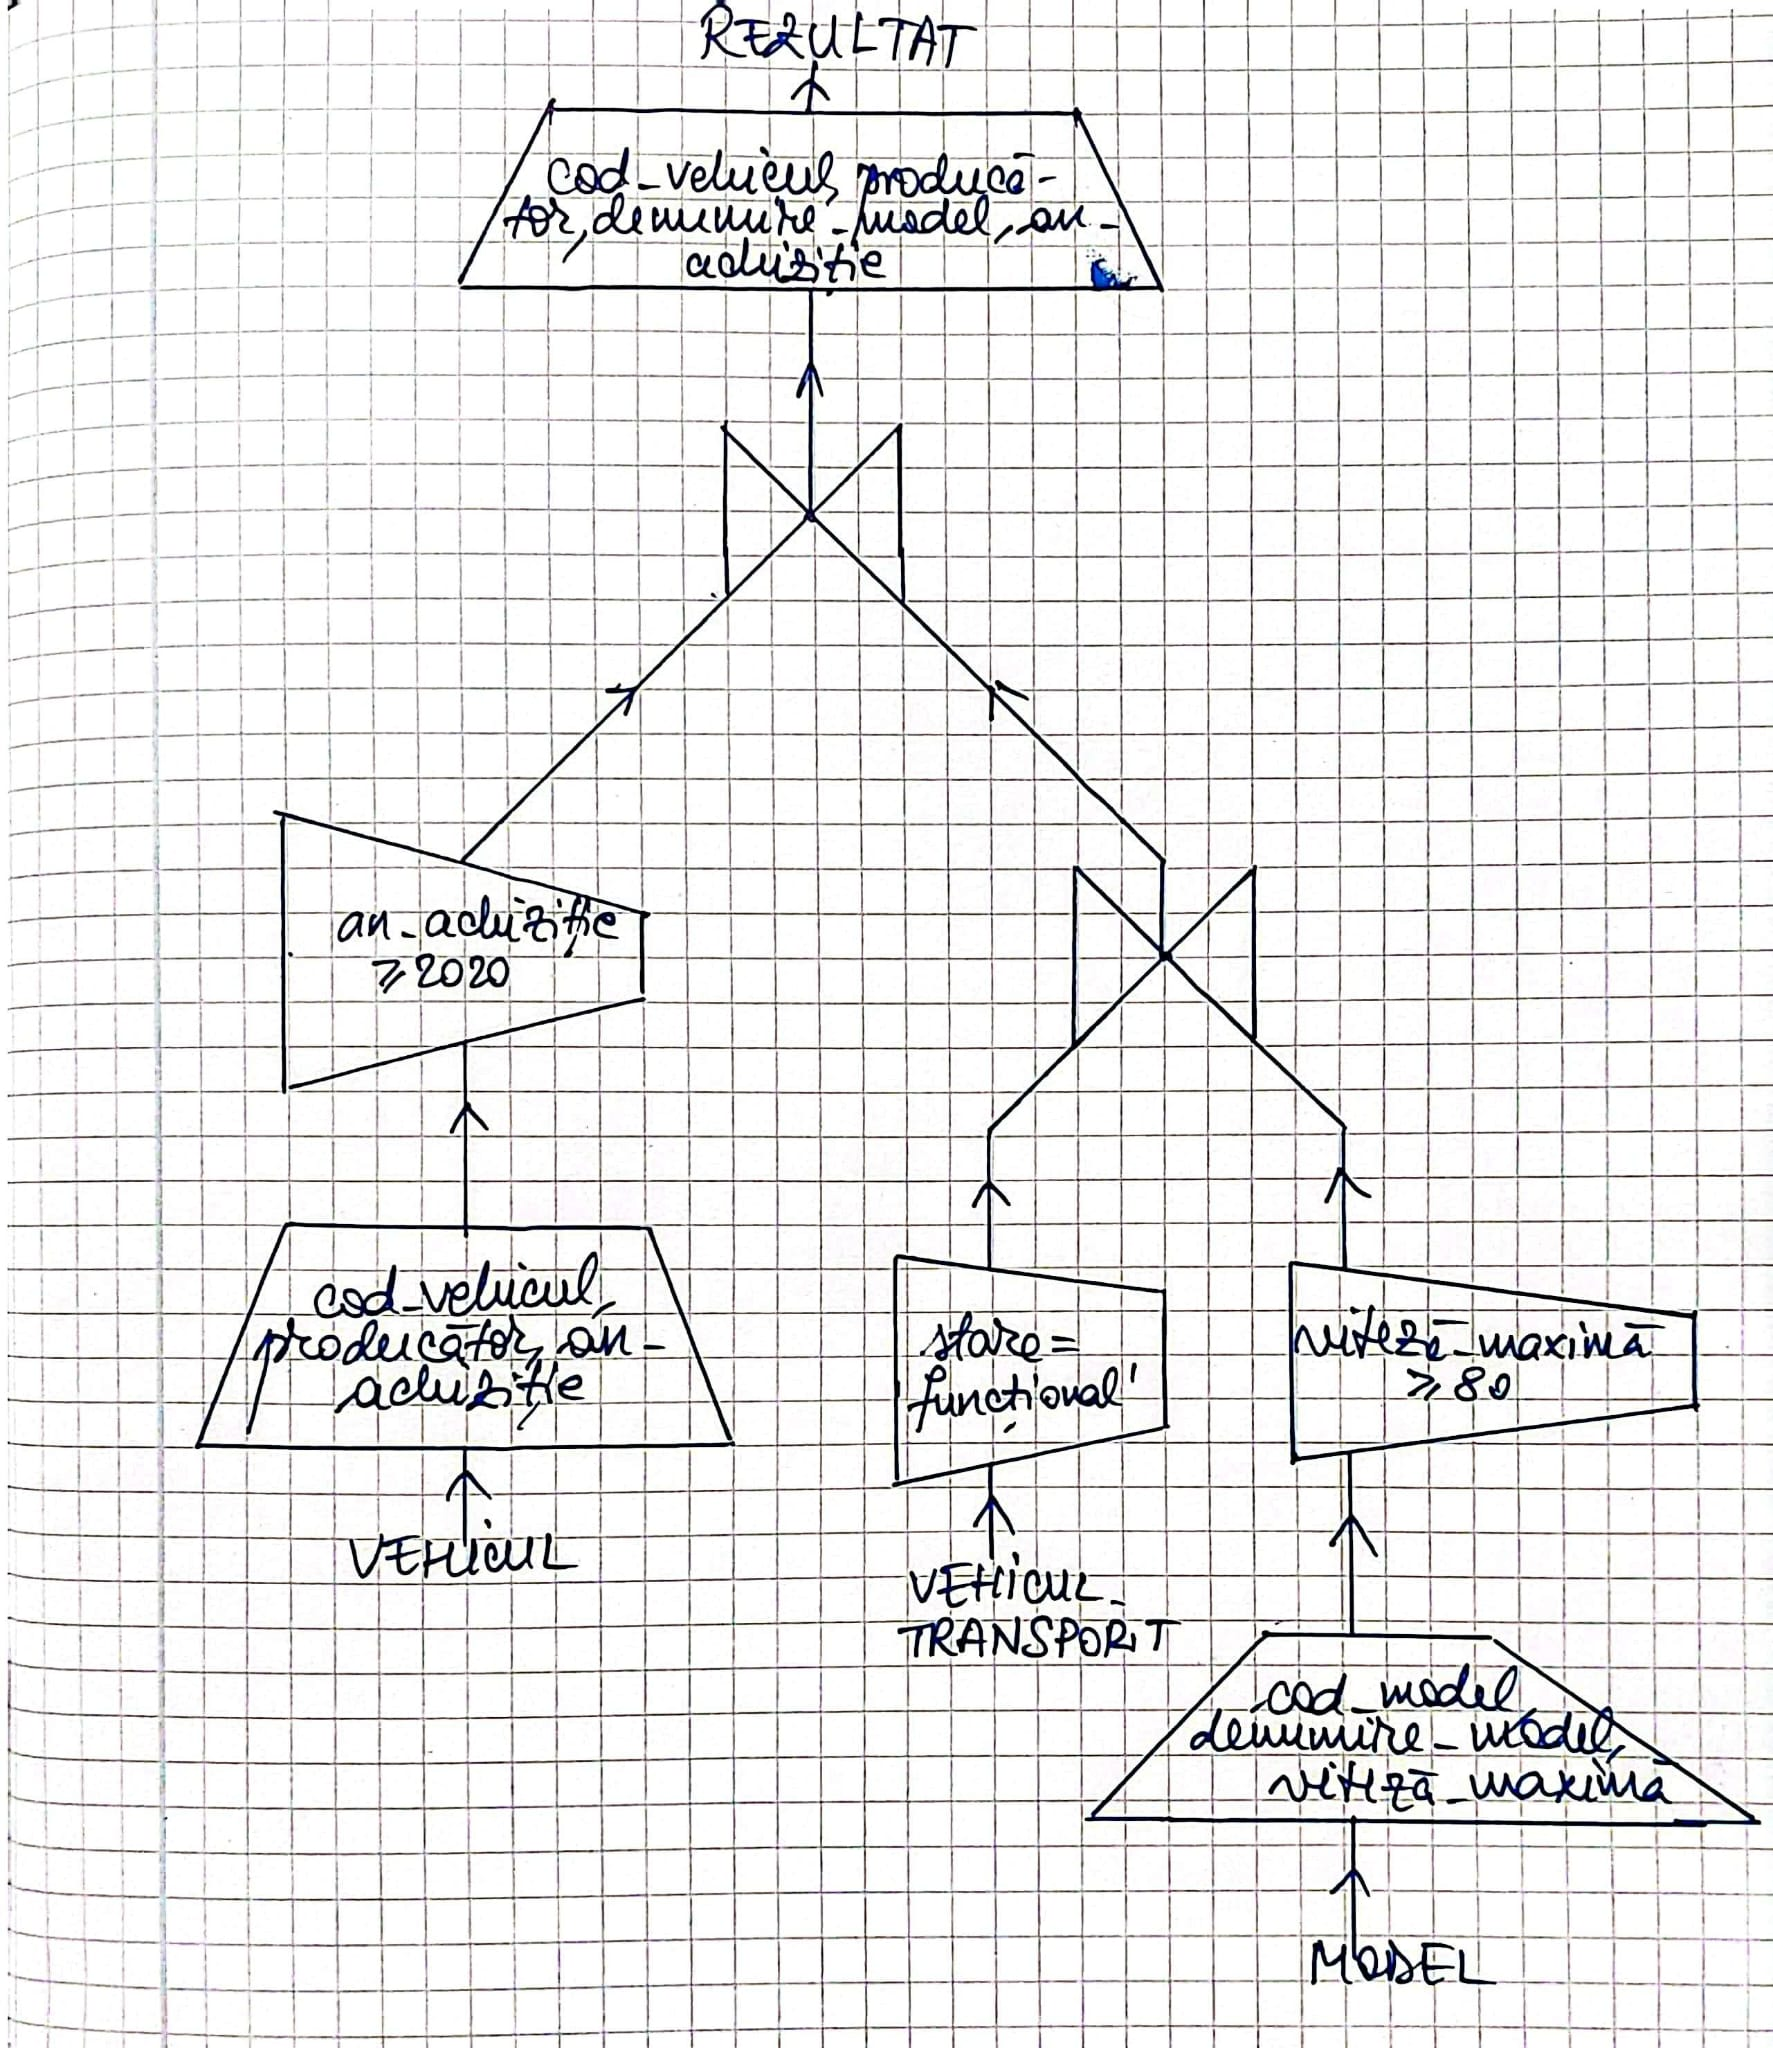 REZULTAT
cod_vehicul, producă-
tor, denumire_model, an_
achiziție
an_achiziție
≥2020
cod_vehicul,
producător, an_
achiziție
VEHICUL
stare=
funcțional'
VEHICUL_
TRANSPORT
viteză_maximă
≥80
cod_model,
denumire_model,
viteză_maximă
MODEL